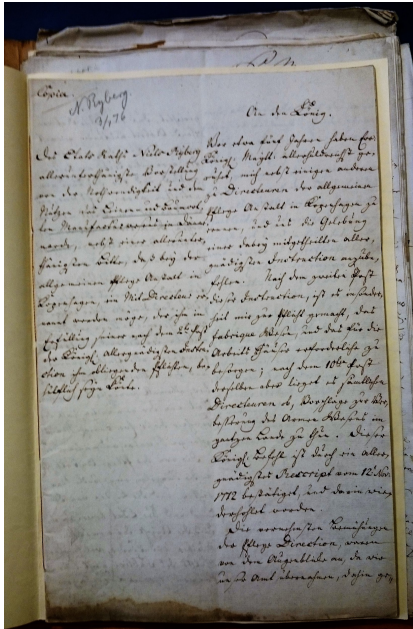 Copia
N Ryberg
An den König.
Des Etats Raths Niels Ryberg
allerunterthänigste Vorstellung
von der Nothwendigkeit und dem
Nutzen des Leinen und
Manufacturwesens in Däne-
marck, nebst einer allerunter-
thänigsten Bitte, daß bey der
allgemeinen Pflege Anstalt in
Copenhagen, ein Mit-Directeur er-
nannt werden möge, der ihm in
Erfüllung seiner nach dem 2ten Post
der Königl. Allergnädigsten Instru-
ction ihm obliegenden Pflichten, be-
hülflich seyn könte.
Vor etwa fünf Jahren haben Ew.
Königl. Maytt. allerhuldreichst ge-
ruhet, mich nebst einigen anderen
zu Directeuren der allgemeinen
Pflege Anstalt in Copenhagen zu
ernennen, und uns die Gelobung
einer dabey mitgetheilten aller-
gnädigsten Instruction anzube-
fehlen. Nach dem zweiten Post
dieser Instruction, ist es insonder-
heit mir zur Pflicht gemacht, das
Fabrique Wesen, und das für die
Arbeits Häuser erforderliche zu
besorgen; nach dem 10ten Post
derselben aber lieget es sämtlichen
Directeuren ob, Vorschläge zur Ver-
besserung des Armen Wesens im
gantzen Lande zu thun. Dieser
Königl. Befehl ist durch ein aller-
gnädigstes Rescript vom 12 Nov.
1772 bestätiget, und darin wie-
derhohlet worden.
Die vornehmsten Bemühungen
der Pflege Direction, waren
von dem Augenblicke an, da wir
unser Amt übernahmen, dahin ge-